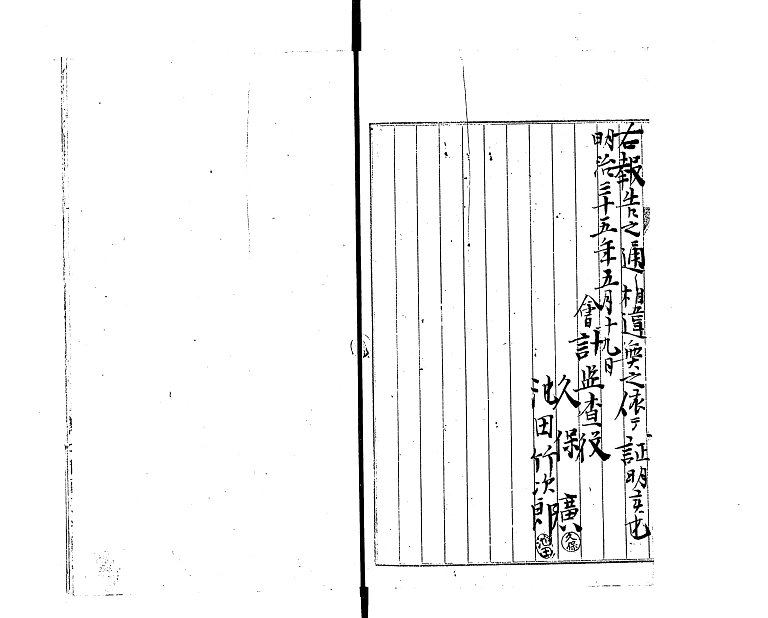 右報告之通リ相違無之依テ証明候也
明治三十五年五月十九日
會計監査役
久保廣
久保
池田竹次郎
池田